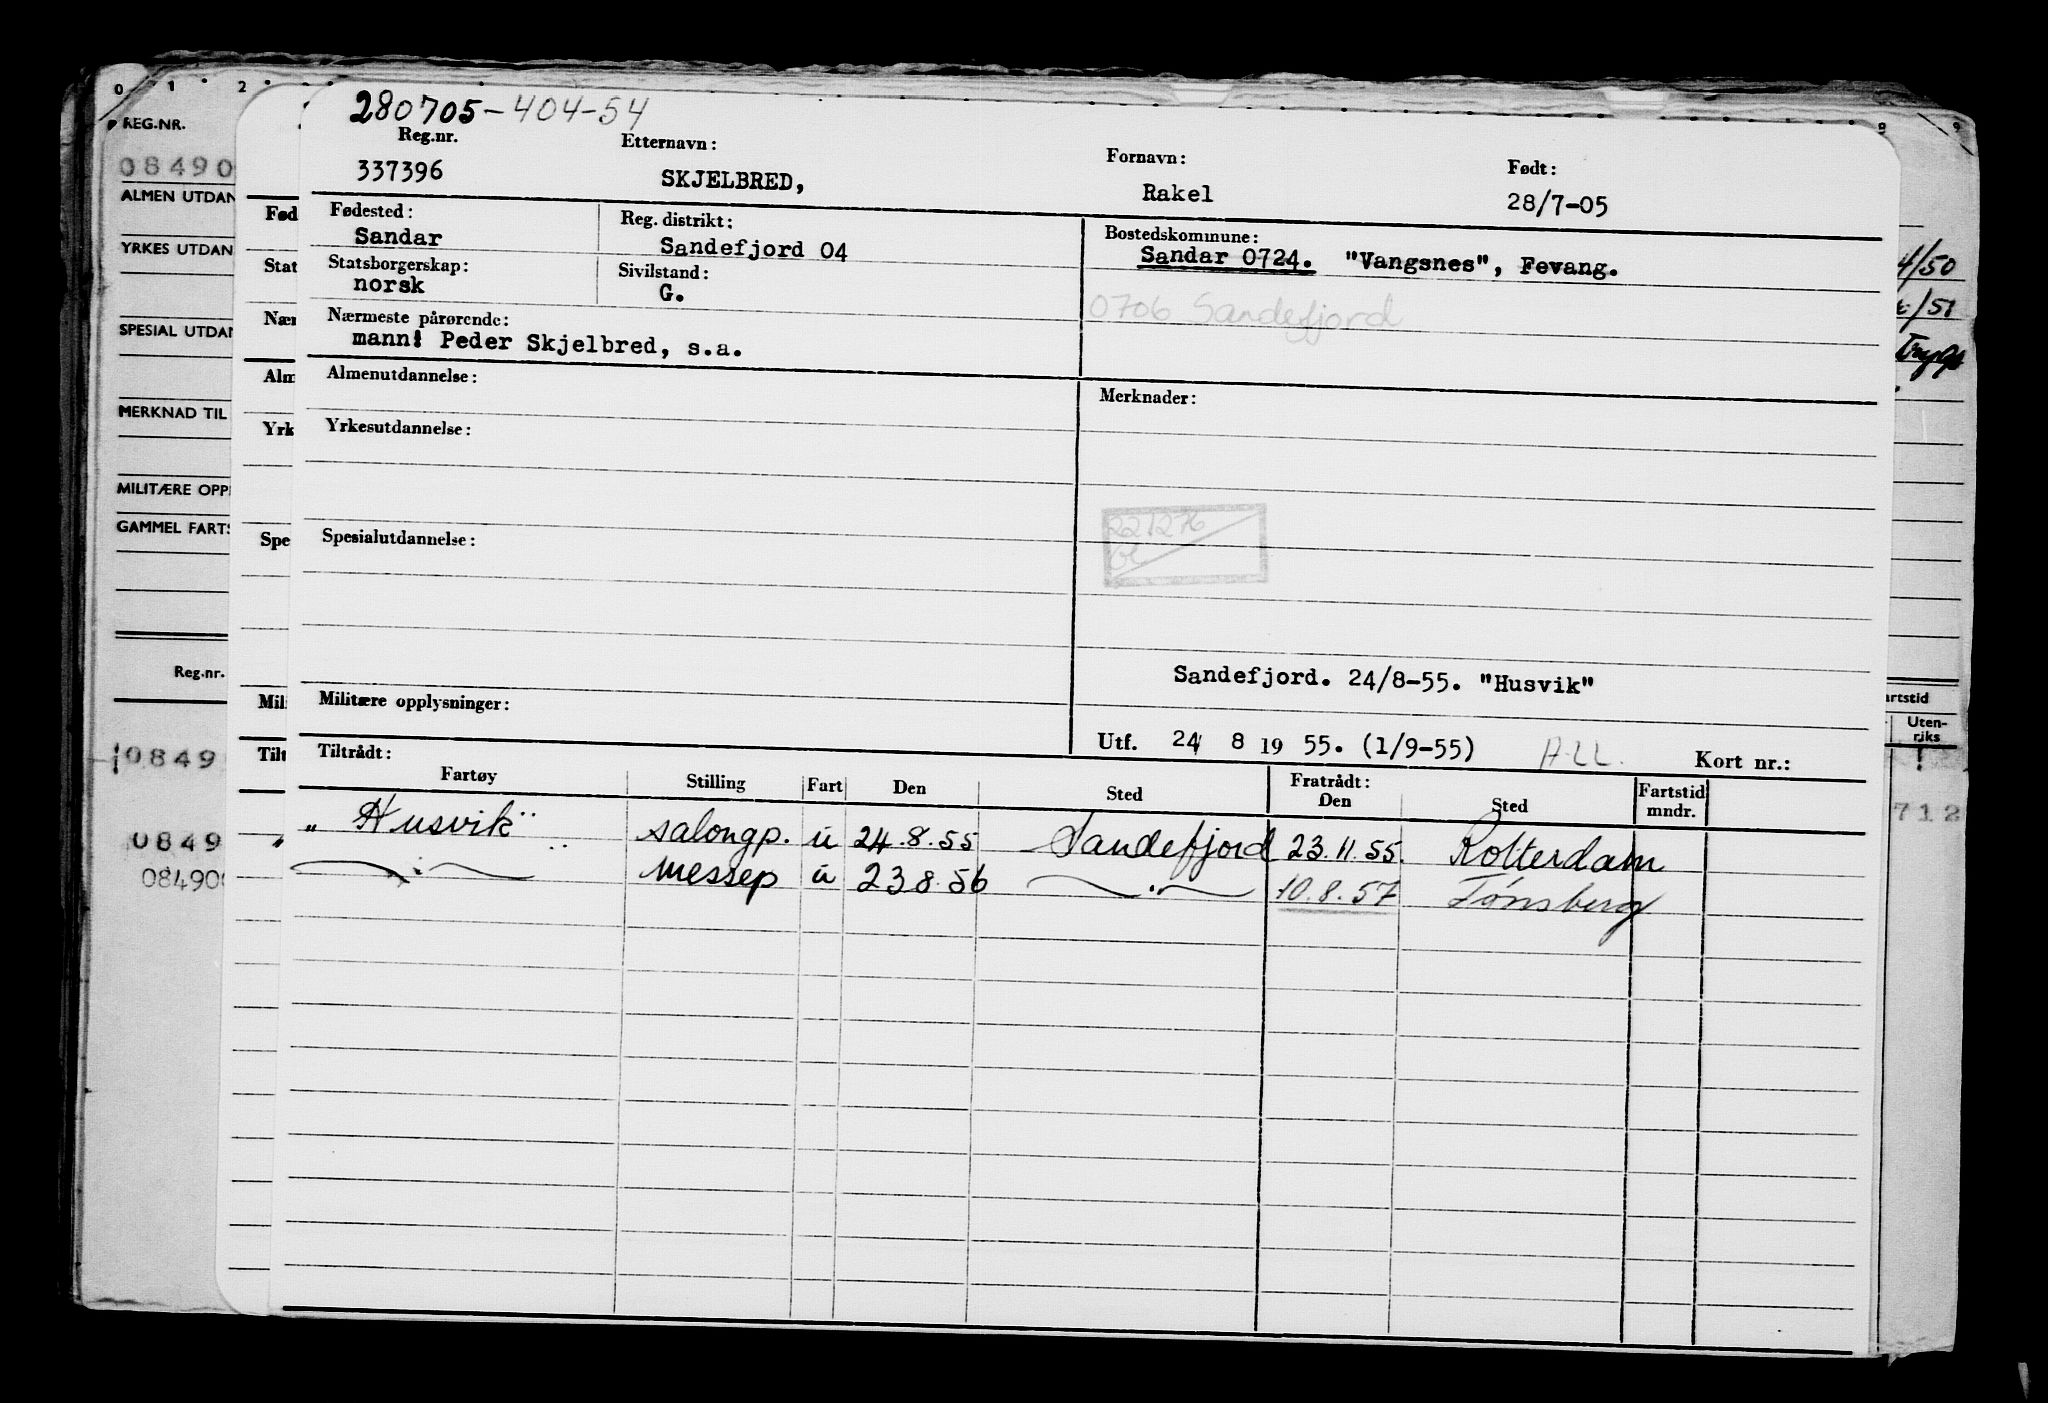 0 1 2
280705-404-54
REG.NR.
08490
ALMEN UTDAN
YRKES UTDAN
SPESIAL UTDAN
MERKNAD TIL
MILITÆRE OPP
GAMMEL FARTS
Reg.nr.
0849
0849
08490
Fød
Stat
Nær
Alm
Yrk
Spe
Mili
Tilt
Reg.nr. Etternavn: Fornavn: Født:
337396 SKJELBRED, Rakel 28/7-05
Fødested: Reg. distrikt: Bostedskommune:
Sandar Sandefjord 04 Sandar 0724. "Vangsnes", Fevang.
Statsborgerskap: Sivilstand:
norsk G.
0706 Sandefjord
Nærmeste pårørende:
mann: Peder Skjelbred, s.a.
Almenutdannelse: Merknader:
Yrkesutdannelse:
221276
Spesialutdannelse:
Sandefjord. 24/8-55. "Husvik"
Militære opplysninger:
Utf. 24 8 19 55. (1/9-55) A-LL. Kort nr.:
Tiltrådt: Fratrådt: Fartstid
Fartøy Stilling Fart Den Sted Den Sted mndr.
"Husvik" salongp. u 24.8.55 Sandefjord 23.11.55. Rotterdam
—"— messep u 23 8.56 —"— 10.8.57 Tønsberg
4/50
/51
artstid
Uten-
riks
712